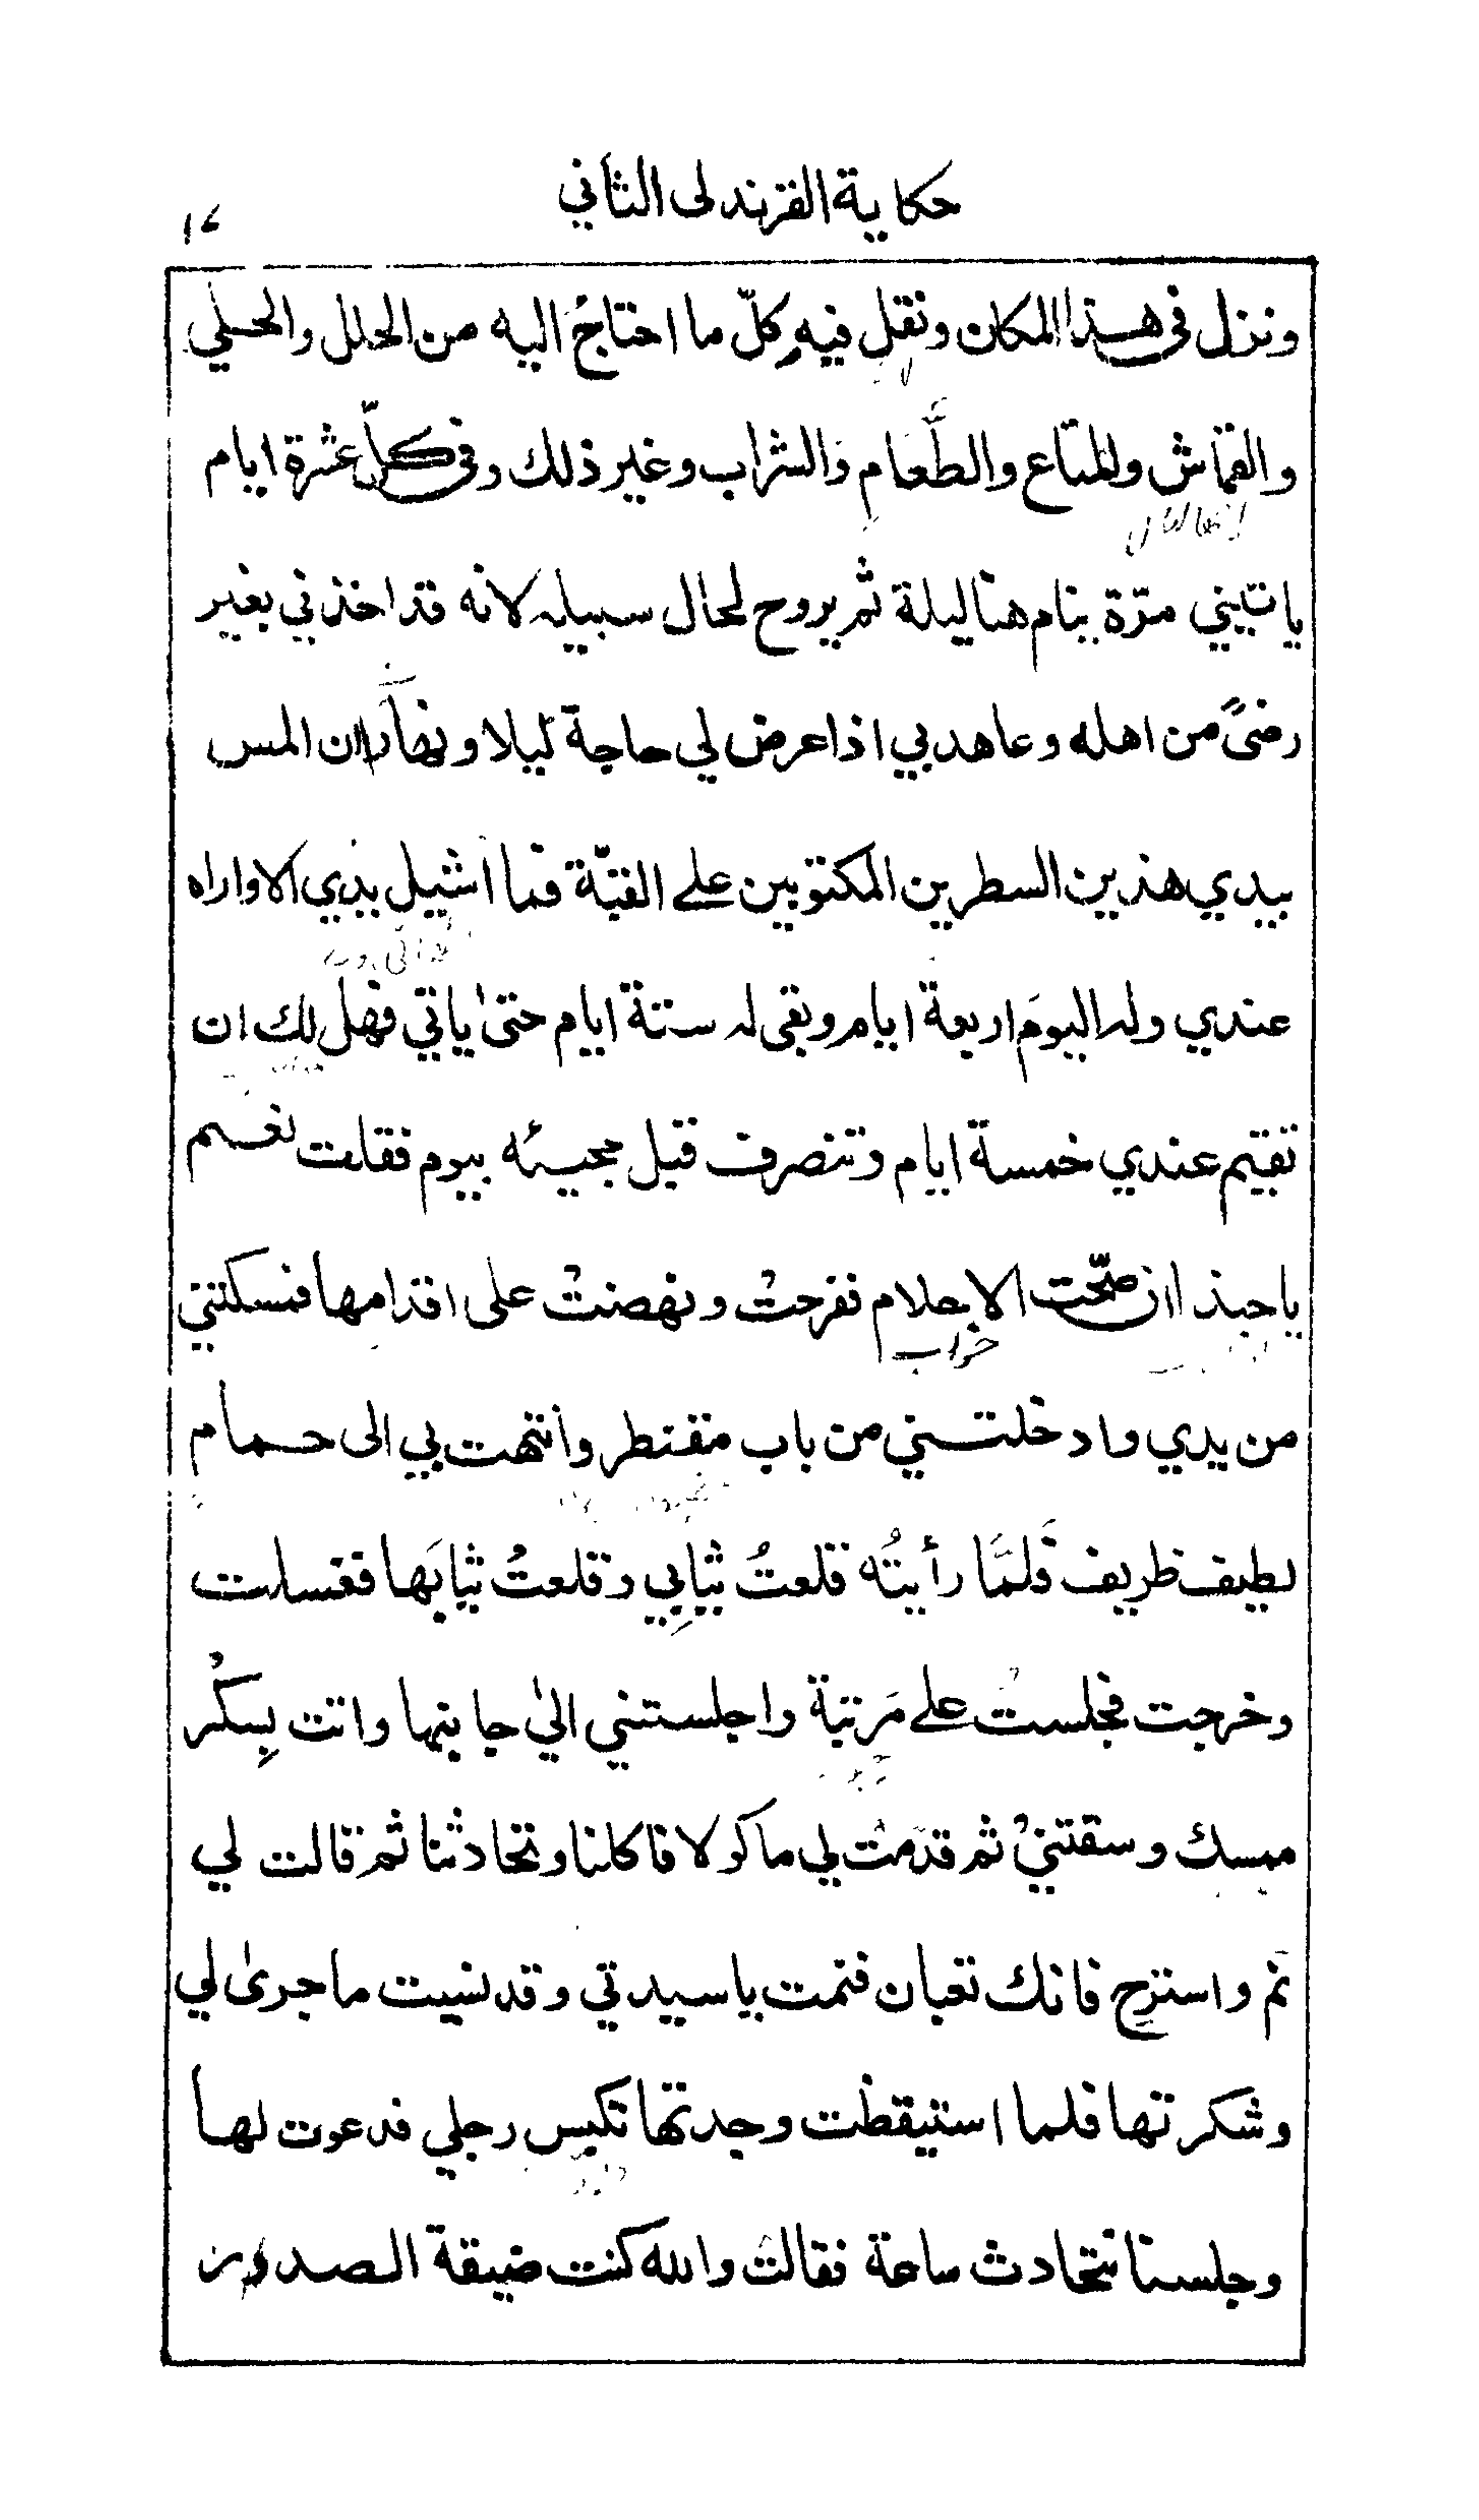 حكاية القرندلى الثاني
ونزل في هذا المكان ونقل فيه كلّ ما احتاجُ اليه من الحلل والحلي
والقماش ولمتاع والطَّعَام والشراب وغير ذلك وفى كلّ عشرة ايام
ياتيني مرّة ينام هنا ليلة ثم يروح لحال سبيله لانه قد اخذني بغير
رضىً من اهله وعاهدني اذا عرض لي حاجة ليلا ونهاراً ان المس
بيدي هذين السطرين المكتوبين على القبّة فما اشيل يدي الا واراه
عندي وله اليومَ اربعة ايام وبقى له ستة ايام حتىٰ ياتي فهل لك ان
تقيم عندي خمسة ايام وتنصرف قبل مجيئه بيوم فقلت نعم
يا حبذا ان صحّت الاحلام ففرحتْ ونهضتْ على اقدامها فمسكتني
خواب
من يدي وادخلتني من باب مقنطر وانتهت بي الى حمام
لطيف ظريف فَلَمَّا رأيتُه قلعتُ ثيابِي وقلعتُ ثيابَها فغسلت
وخرجت فجلستْ على مَرتبة واجلستني الىٰ جانبها واتت بِسكْر
مسك وسقتنيْ ثم قدّمتْ لي ماكولا فاكلنا وتحادثنا ثم قالت لي
نَم واسترح فانك تعبان فنمت يا سيدتي وقد نسيت ما جرىٰ لي
وشكرتها فلما استيقظت وجدتها تكبس رجلي فدعوت لها
وجلسنا نتحادث ساعة فقالت والله كنت ضيقة الصدر